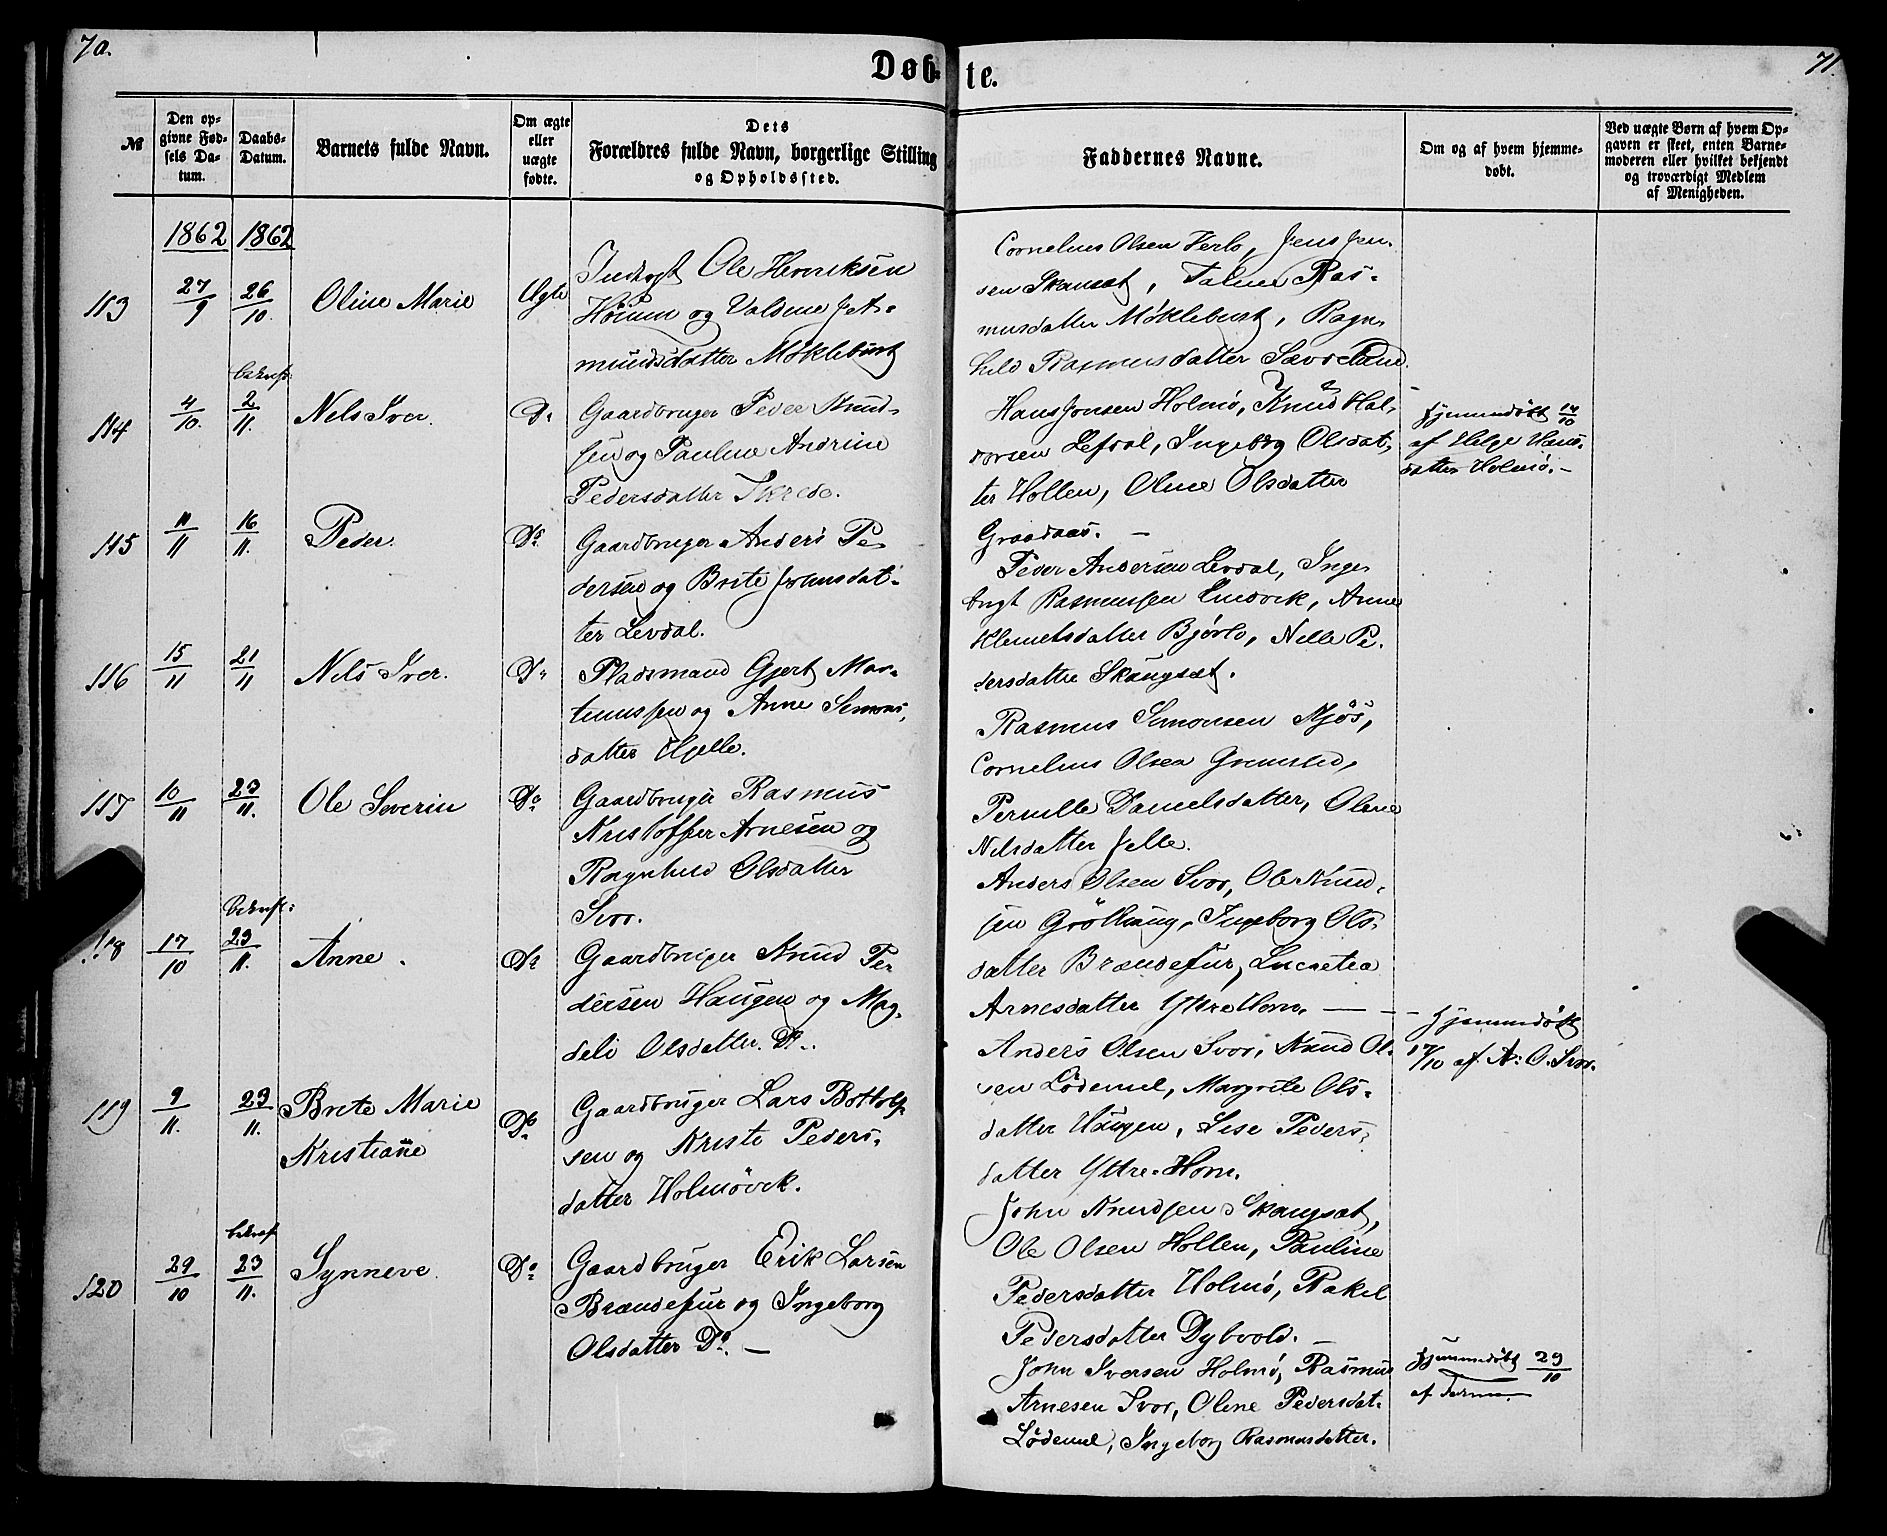 70.
71.
Døbte.
№
Den opgivne Fødsels Datum.
Daabs-Datum.
Barnets fulde Navn.
Om ægte eller uægte fødte.
Dets Forældres fulde Navn, borgerlige Stilling og Opholdssted.
Faddernes Navne.
Om og af hvem hjemmedøbt.
Ved uægte Børn af hvem Opgaven er skeet, enten Barnemoderen eller hvilket bekjendt og troværdigt Medlem af Menigheden.
1862 1862
113
27/9
26/10.
Oline Marie
Ole Henriksen
og Valdine
mundsdatter Møklebust
Cornelius Olsen Jens Jen-
sen Ras-
musdatter Møklebust, Ragn-
hild Rasmusdatter
114
4/10.
bekræft:
2/11.
Nels Iver.
Do
Gaardbruger Peder Knud-
sen og Pauline Andrine
Pedersdatter
Hans Jonsen Holmø, Knud Hal-
vorsen Lefdal, Ingeborg Olsdat-
ter Hollen, Oline Olsdatter
Graadaas. —
Hjemmedøbt
af Helge Hans-
datter Holmø. —
115
11/11
16/11.
Peder.
Do
Gaardbruger Anders Pe-
dersen og Brite Johnsdat-
ter Levdal.
Peder Andersen Levdal, Inge-
brigt Rasmussen Indvik, Anne
Klemetsdatter Bjørlo, Nille Pe-
dersdatter Skaugsæt.
116
15/11
21/11
Nels Iver.
Do
Pladsmand Gjert Mar-
tinussen og Anne Simons-
datter Hjelle.
Rasmus Simonsen Mjøs,
Cornelius Olsen
Pernille Danielsdatter, Oline
Nilsdatter Jelle.
117
10/11
23/11.
Ole Severin
Do
Gaardbruger Rasmus
Kristoffer Arnesen og
Ragnhild Olsdatter
Svor.
Anders Olsen Svor, Ole Knud-
sen Ingeborg Ols-
datter Brændefur, Lucretia
Arnesdatter Ytre Horn. —
118
17/10
bekræft:
23/11.
Anne.
Do
Gaardbruger Knud Pe-
dersen Haugen og Mag-
deli Olsdatter. Do.
Anders Olsen Svor, Knud Ol-
sen Lødemel, Margrete Ols-
datter Haugen, Lise Peders-
datter Ytre-Horn.
Hjemmedøbt
17/10 af A: O. Svor.
119
9/11.
23/11.
Brite Marie
Kristiane
Do
Gaardbruger Lars Bottolf-
sen og Kristi Peders-
datter Holmövik.
John Knudsen Skaugsæt,
Ole Olsen Hollen, Pauline
Pedersdatter Holmø, Rakel
Pedersdatter Dybvold. —
120
29/10
bekræft
23/11.
Synneve.
Do
Gaardbruger Erik Larsen
Brændefur og Ingeborg
Olsdatter Do. —
John Iversen Holmø, Rasmus
Arnesen Svor, Oline Pedersdat.
Lødemel, Ingeborg Rasmusdatter.
Hjemmedøbt 29/10
af